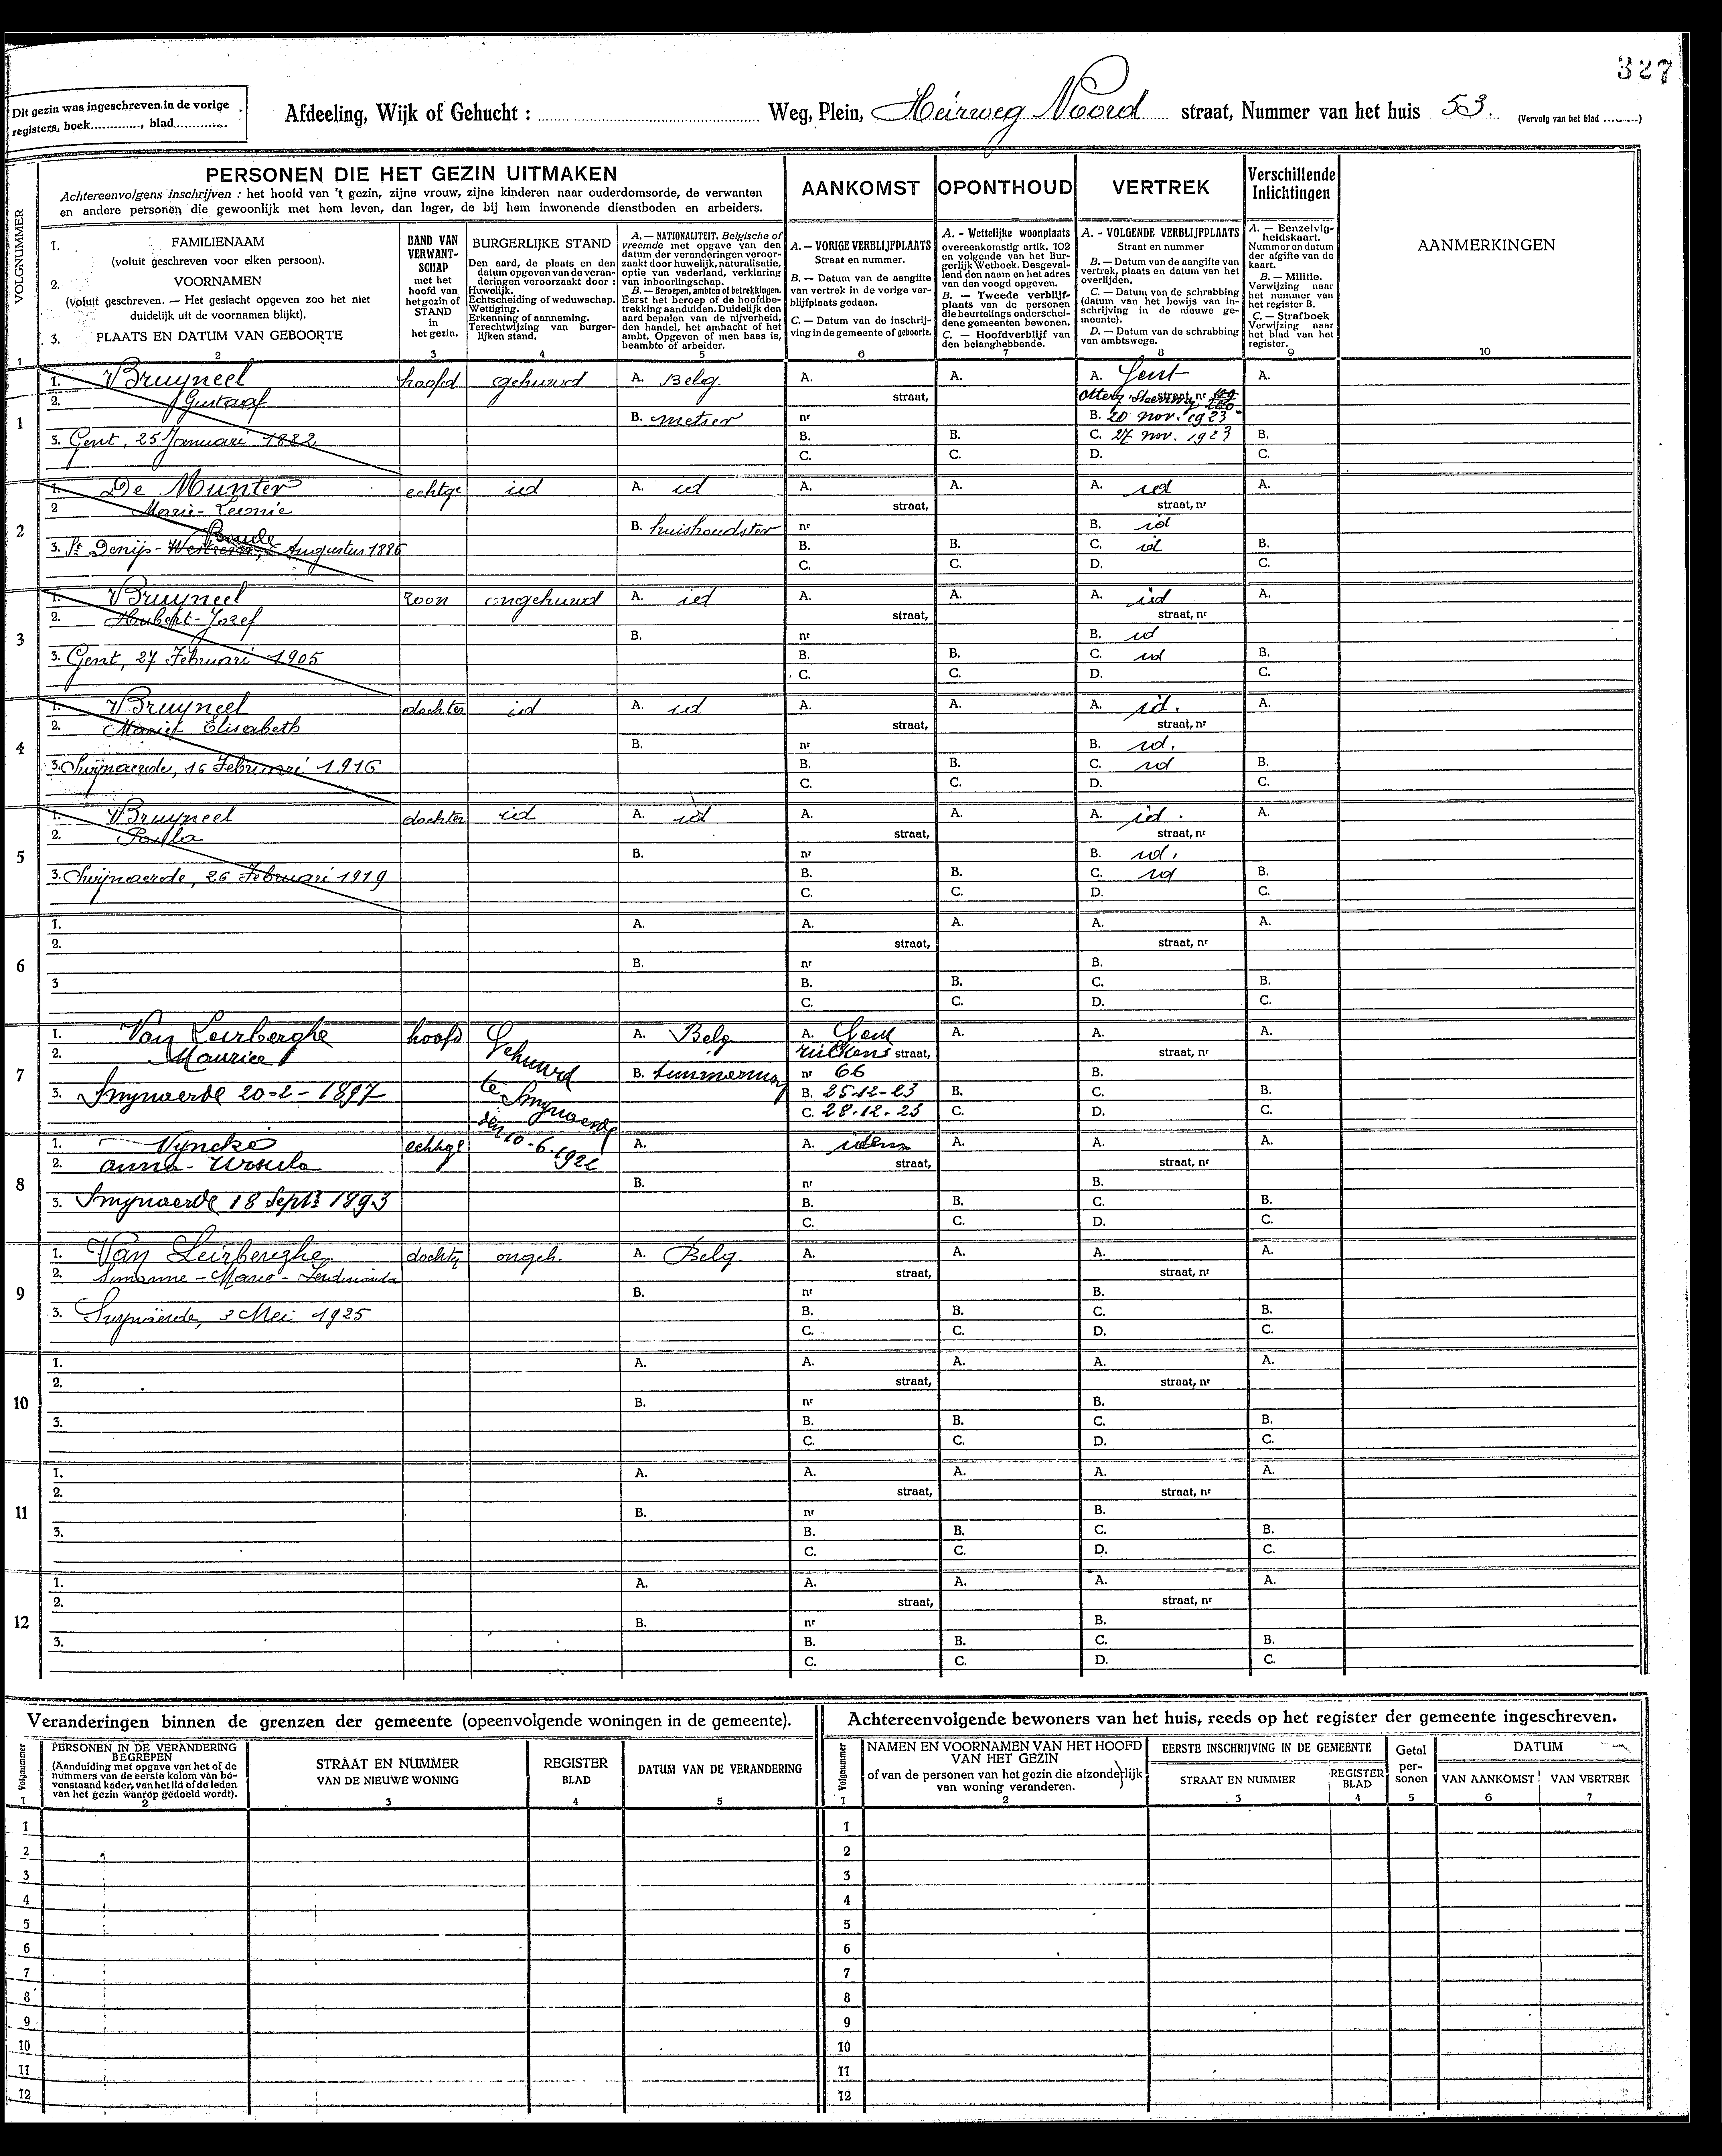 327
Dit gezin was ingeschreven in de vorige
registers, boek............., blad.............
Afdeeling, Wijk of Gehucht : Weg, Plein, Heirweg Noord straat, Nummer van het huis 53. (Vervolg van het blad .........)
VOLGNUMMER
PERSONEN DIE HET GEZIN UITMAKEN
Achtereenvolgens inschrijven : het hoofd van 't gezin, zijne vrouw, zijne kinderen naar ouderdomsorde, de verwanten
en andere personen die gewoonlijk met hem leven, dan lager, de bij hem inwonende dienstboden en arbeiders.
AANKOMST OPONTHOUD VERTREK Verschillende Inlichtingen
1. FAMILIENAAM
(voluit geschreven voor elken persoon).
2. VOORNAMEN
(voluit geschreven. — Het geslacht opgeven zoo het niet
duidelijk uit de voornamen blijkt).
3. PLAATS EN DATUM VAN GEBOORTE
BAND VAN
VERWANT-
SCHAP
met het
hoofd van
het gezin of
STAND
in
het gezin.
BURGERLIJKE STAND
Den aard, de plaats en den
datum opgeven van de veran-
deringen veroorzaakt door :
Huwelijk.
Echtscheiding of weduwschap.
Wettiging.
Erkenning of aanneming.
Terechtwijzing van burger-
lijken stand.
A. — NATIONALITEIT. Belgische of
vreemde met opgave van den
datum der veranderingen veroor-
zaakt door huwelijk, naturalisatie,
optie van vaderland, verklaring
van inboorlingschap.
B. — Beroepen, ambten of betrekkingen.
Eerst het beroep of de hoofdbe-
trekking aanduiden. Duidelijk den
aard bepalen van de nijverheid,
den handel, het ambacht of het
ambt. Opgeven of men baas is,
beambte of arbeider.
A. — VORIGE VERBLIJFPLAATS
Straat en nummer.
B. — Datum van de aangifte
van vertrek in de vorige ver-
blijfplaats gedaan.
C. — Datum van de inschrij-
ving in de gemeente of geboorte.
A. - Wettelijke woonplaats
overeenkomstig artik. 102
en volgende van het Bur-
gerlijk Wetboek. Desgeval-
lend den naam en het adres
van den voogd opgeven.
B. — Tweede verblijf-
plaats van de personen
die beurtelings onderschei-
dene gemeenten bewonen.
C. — Hoofdverblijf van
den belanghebbende.
A. - VOLGENDE VERBLIJFPLAATS
Straat en nummer
B. — Datum van de aangifte van
vertrek, plaats en datum van het
overlijden.
C. — Datum van de schrabbing
(datum van het bewijs van in-
schrijving in de nieuwe ge-
meente).
D. — Datum van de schrabbing
van ambtswege.
A. — Eenzelvig-
heidskaart.
Nummer en datum
der afgifte van de
kaart.
B. — Militie.
Verwijzing naar
het nummer van
het register B.
C. — Strafboek
Verwijzing naar
het blad van het
register.
AANMERKINGEN
1 2 3 4 5 6 7 8 9 10
1. Bruyneel hoofd gehuwd A. Belg A. A. A. Gent A.
2. Gustaaf straat, straat, nr
1 B. metser nr B. 20 nov. 1923
3. Gent, 25 Januari 1882 B. B. C. 27 nov. 1923 B.
C. C. D. C.
1. De Munter echtge id A. id A. A. A. id A.
2 Marie-Leonie straat, straat, nr
2 B. huishoudster nr B. id
Boucle
3. St Denijs-Westrem, Augustus 1886 B. B. C. id B.
C. C. D. C.
1. Bruyneel zoon ongehuwd A. id A. A. A. id A.
2. Hubert-Jozef straat, straat, nr
3 B. nr B. id
3. Gent, 27 Februari 1905 B. B. C. id B.
C. C. D. C.
1. Bruyneel dochter id A. id A. A. A. id. A.
2. Elisabeth straat, straat, nr
4 B. nr B. id.
3. Swijnaerde, 16 Februari 1916 B. B. C. id B.
C. C. D. C.
1. Bruyneel dochter id A. id A. A. A. id. A.
2. Paula straat, straat, nr
5 B. nr B. id.
3. Swijnaerde, 26 Februari 1919 B. B. C. id B.
C. C. D. C.
1. A. A. A. A. A.
2. straat, straat, nr
6 B. nr B.
3 B. B. C. B.
C. C. D. C.
1. Van Leirberghe hoofd Gehuwd A. Belg A. Gent A. A. A.
2. Maurice straat, straat, nr
7 te Swynaerde B. timmerman nr 66 B.
3. Swynaerde 20-2-1897 B. 25-12-23 B. C. B.
den 10-6-1922 C. 28-12-23 C. D. C.
1. Vyncke echtge A. A. idem A. A. A.
2. anna-Ursula straat, straat, nr
8 B. nr B.
3. Swynaerde 18 Sept. 1893 B. B. C. B.
C. C. D. C.
1. Van Leirberghe dochter ongeh. A. Belg A. A. A. A.
2. Simonne-Marie-Ferdinanda straat, straat, nr
9 B. nr B.
3. Swynaerde, 3 Mei 1925 B. B. C. B.
C. C. D. C.
1. A. A. A. A. A.
2. straat, straat, nr
10 B. nr B.
3. B. B. C. B.
C. C. D. C.
1. A. A. A. A. A.
2. straat, straat, nr
11 B. nr B.
3. B. B. C. B.
C. C. D. C.
1. A. A. A. A. A.
2. straat, straat, nr
12 B. nr B.
3. B. B. C. B.
C. C. D. C.
Veranderingen binnen de grenzen der gemeente (opeenvolgende woningen in de gemeente).
Volgnummer
PERSONEN IN DE VERANDERING
BEGREPEN
(Aanduiding met opgave van het of de
nummers van de eerste kolom van bo-
venstaand kader, van het lid of de leden
van het gezin waarop gedoeld wordt).
STRAAT EN NUMMER
VAN DE NIEUWE WONING
REGISTER
BLAD
DATUM VAN DE VERANDERING
1 2 3 4 5
1
2
3
4
5
6
7
8
9
10
11
12
Achtereenvolgende bewoners van het huis, reeds op het register der gemeente ingeschreven.
Volgnummer
NAMEN EN VOORNAMEN VAN HET HOOFD
VAN HET GEZIN
of van de personen van het gezin die afzonderlijk
van woning veranderen.
EERSTE INSCHRIJVING IN DE GEMEENTE
STRAAT EN NUMMER
REGISTER
BLAD
Getal
per-
sonen
DATUM
VAN AANKOMST VAN VERTREK
1 2 3 4 5 6 7
1
2
3
4
5
6
7
8
9
10
11
12